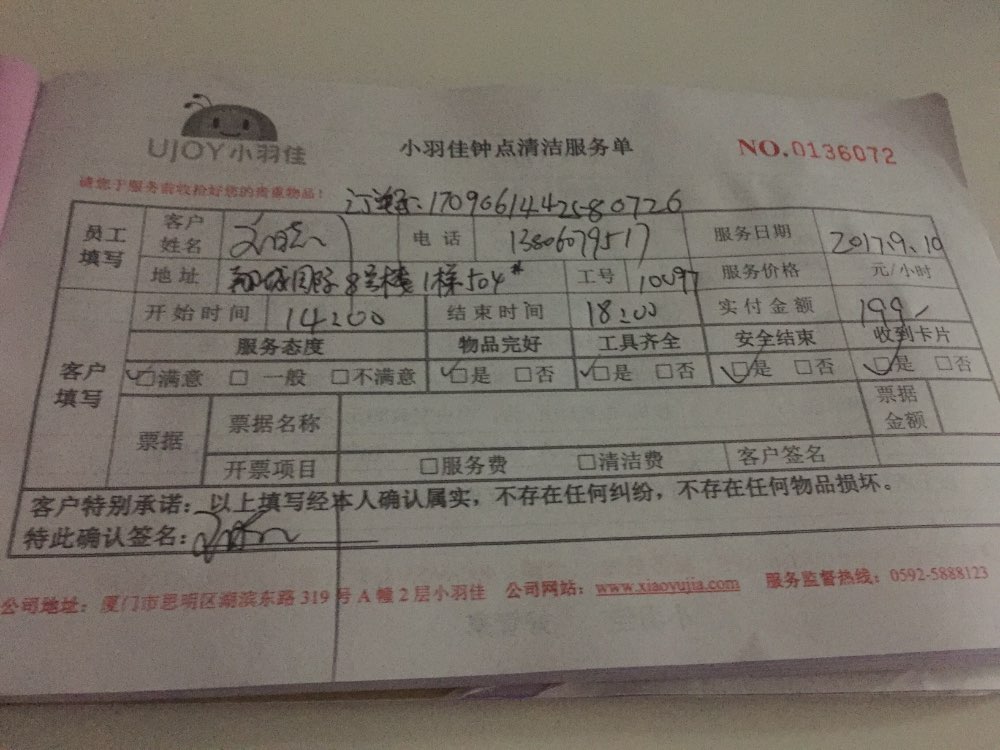 UJOY小羽佳
小羽佳钟点清洁服务单
NO.0136072
请您于服务前收拾好您的贵重物品!
订单号:1709061442580726
员工填写 客户姓名 电话 13806079517 服务日期 2017.9.10
地址 8号楼1梯504# 工号 10097 服务价格 元/小时
客户填写 开始时间 14:00 结束时间 18:00 实付金额 199
服务态度 物品完好 工具齐全 安全结束 收到卡片
☑满意 □一般 □不满意 ☑是 □否 ☑是 □否 ☑是 □否 ☑是 □否
票据 票据名称 票据金额
开票项目 □服务费 □清洁费 客户签名
客户特别承诺:以上填写经本人确认属实,不存在任何纠纷,不存在任何物品损坏。
特此确认签名:
公司地址:厦门市思明区湖滨东路319号A幢2层小羽佳 公司网站:www.xiaoyujia.com 服务监督热线:0592-5888123